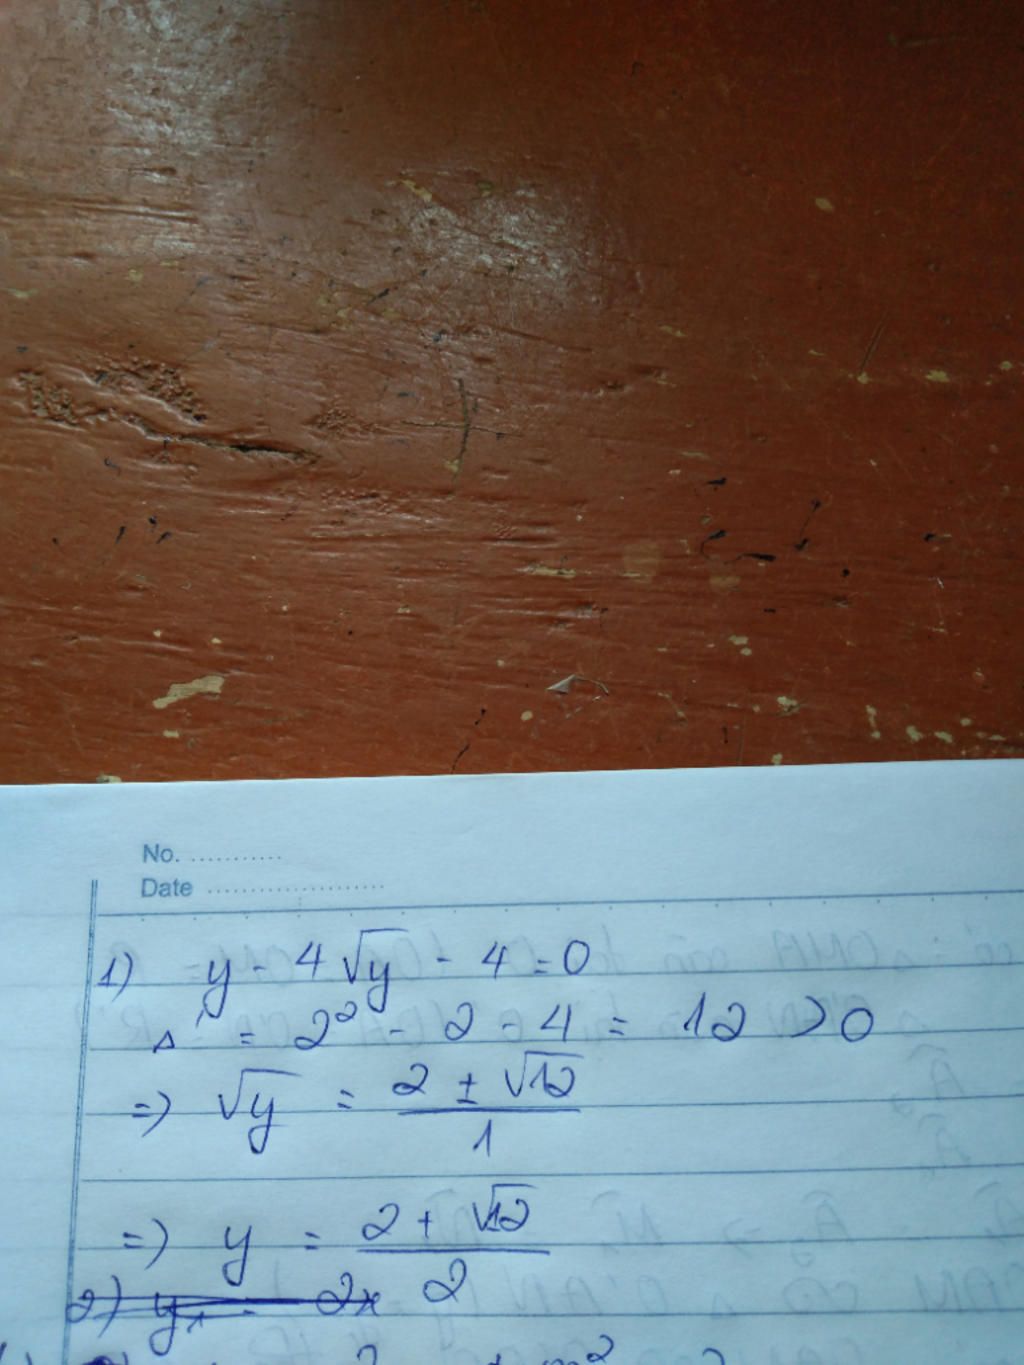 No. ...........
Date .....................
1) y - 4√y - 4 = 0
Δ' = 2² - 2 - 4 = 12 > 0
=) √y = (2 ± √12)/1
=) y = (2 + √12)/2
2) y₁ - 2x